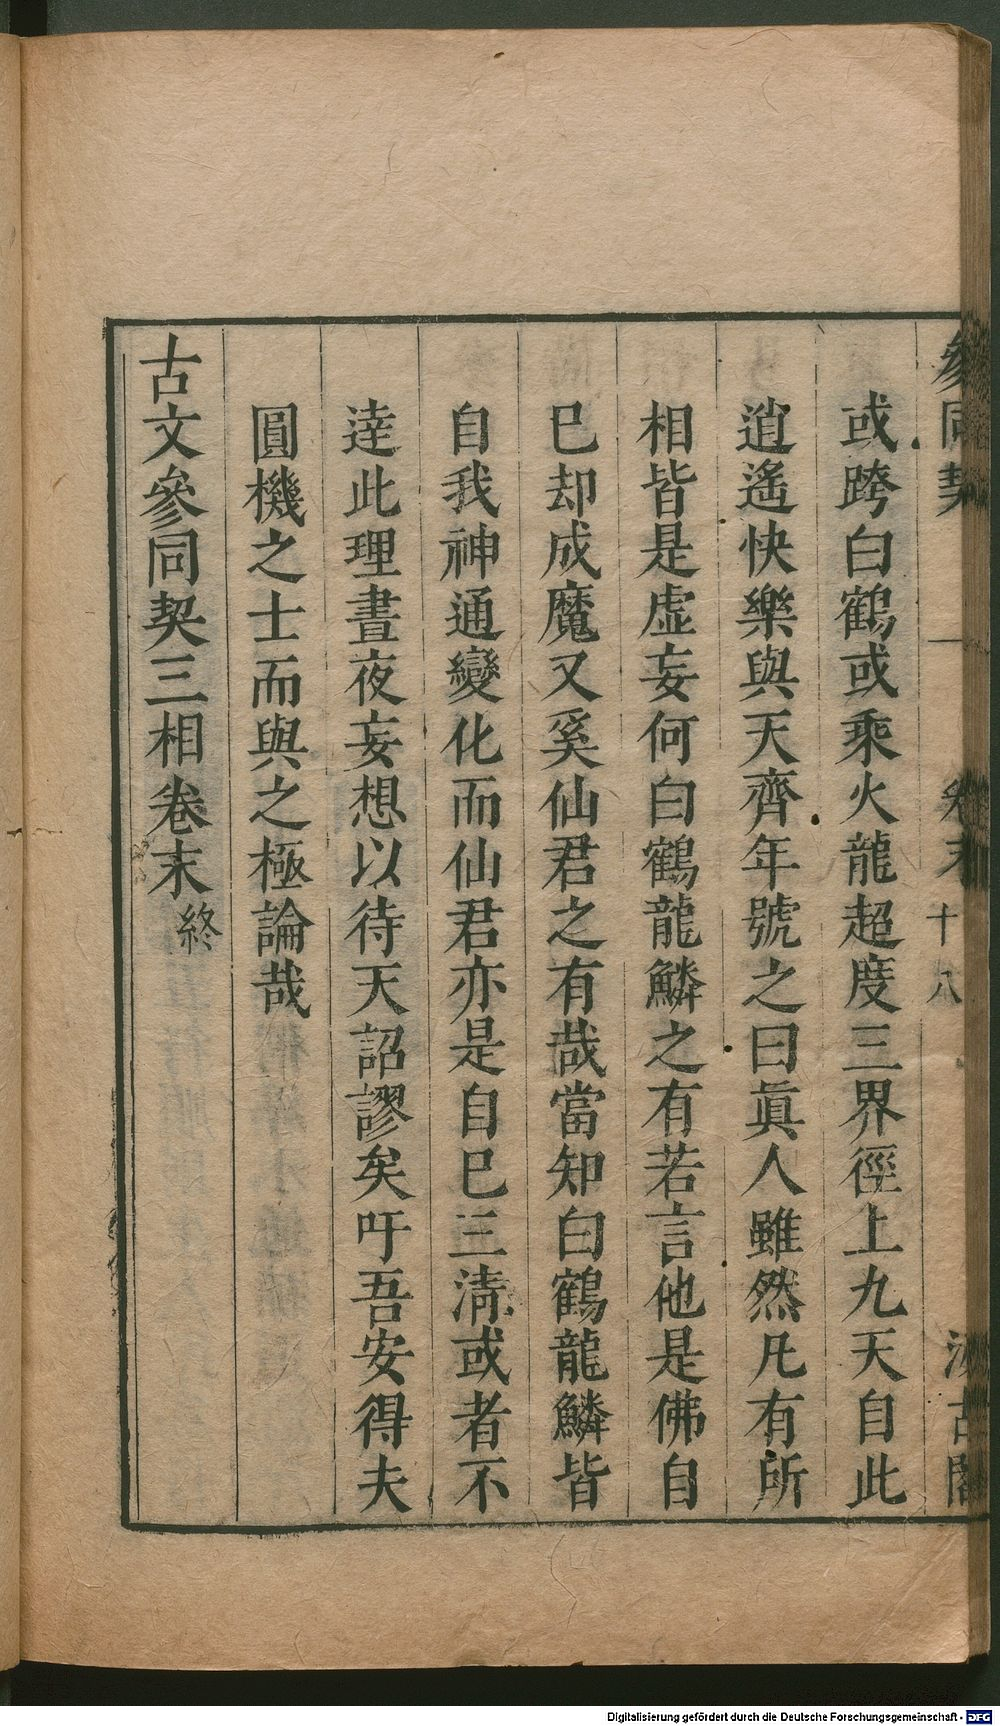 參同契 卷末 十八 汲古閣
或跨白鶴或乘火龍超度三界徑上九天自此
逍遙快樂與天齊年號之曰眞人雖然凡有所
相皆是虛妄何白鶴龍鱗之有若言他是佛自
巳却成魔又奚仙君之有哉當知白鶴龍鱗皆
自我神通變化而仙君亦是自巳三清或者不
達此理晝夜妄想以待天詔謬矣吁吾安得夫
圓機之士而與之極論哉
古文參同契三相卷末終
Digitalisierung gefördert durch die Deutsche Forschungsgemeinschaft - DFG